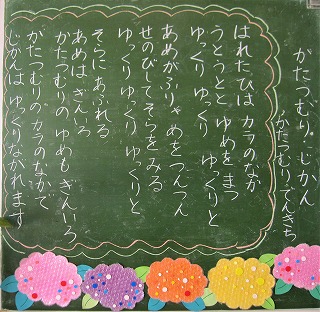 かたつむり。じかん
かたつむりでんきち
はれたひは カラのなか
うとうとと ゆめをまつ
ゆっくり ゆっくりと
あめがふりゃ めをつんつん
せのびして そらをみる
ゆっくり ゆっくりと
そらにあふれる
あめは ぎんいろ
かたつむりの ゆめも ぎんいろ
かたつむりの カラのなかで
じかんは ゆっくりながれます